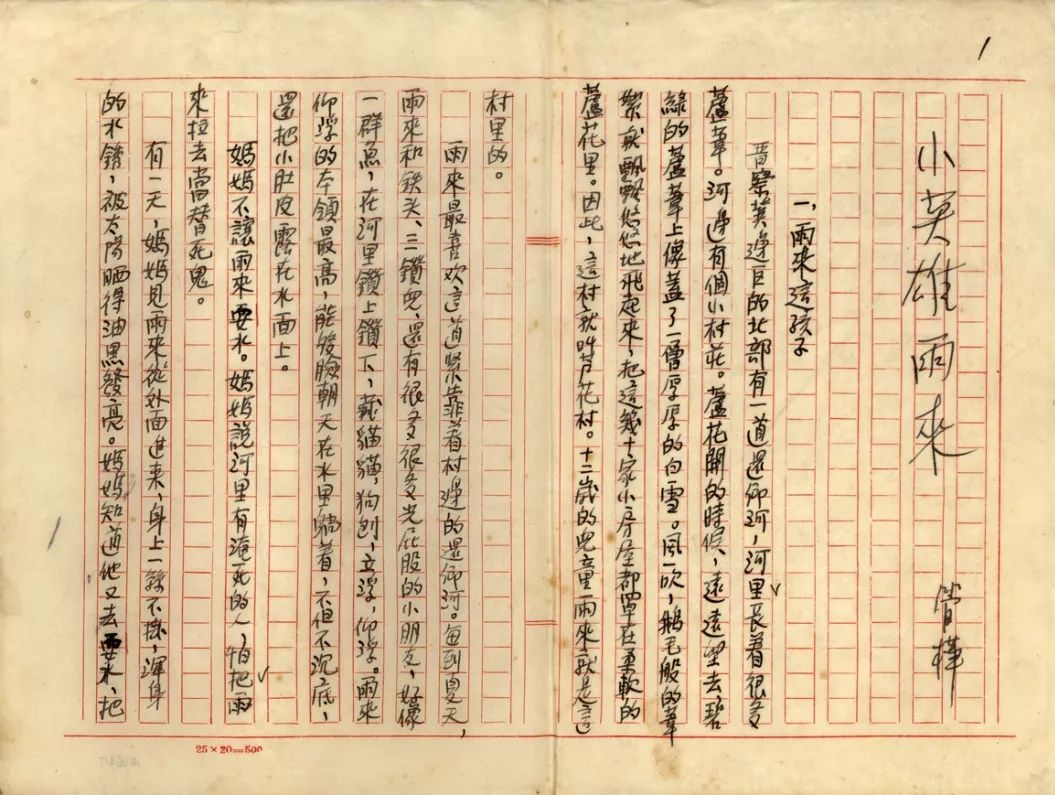 1
小英雄雨來
管樺
一，雨來這孩子
晋察冀邊區的北部有一道還鄉河，河里長着很多
蘆葦。河邊有個小村莊。蘆花開的時候，遠遠望去，碧
綠的蘆葦上像蓋了一層厚厚的白雪。風一吹，鵝毛般的葦
絮就飄飄悠悠地飛起來，把這幾十家小房屋都罩在柔軟的
蘆花里。因此，這村就叫芦花村。十二歲的兒童雨來就是這
村里的。
雨來最喜欢這道緊靠着村邊的還鄉河。每到夏天，
雨來和鉄头、三鑽兒、還有很多很多光屁股的小朋友，好像
一群魚，在河里鑽上鑽下，藏貓貓，狗刨，立浮，仰浮。雨來
仰浮的本領最高，能够臉朝天在水里躺着，不但不沉底，
還把小肚皮露在水面上。
媽媽不讓雨來耍水。媽媽說河里有淹死的人，怕把雨
來拉去當替死鬼。
有一天，媽媽見雨來從外面進来，身上一絲不掛，渾身
的水銹，被太陽晒得油黑發亮。媽媽知道他又去耍水，把
25×20=500